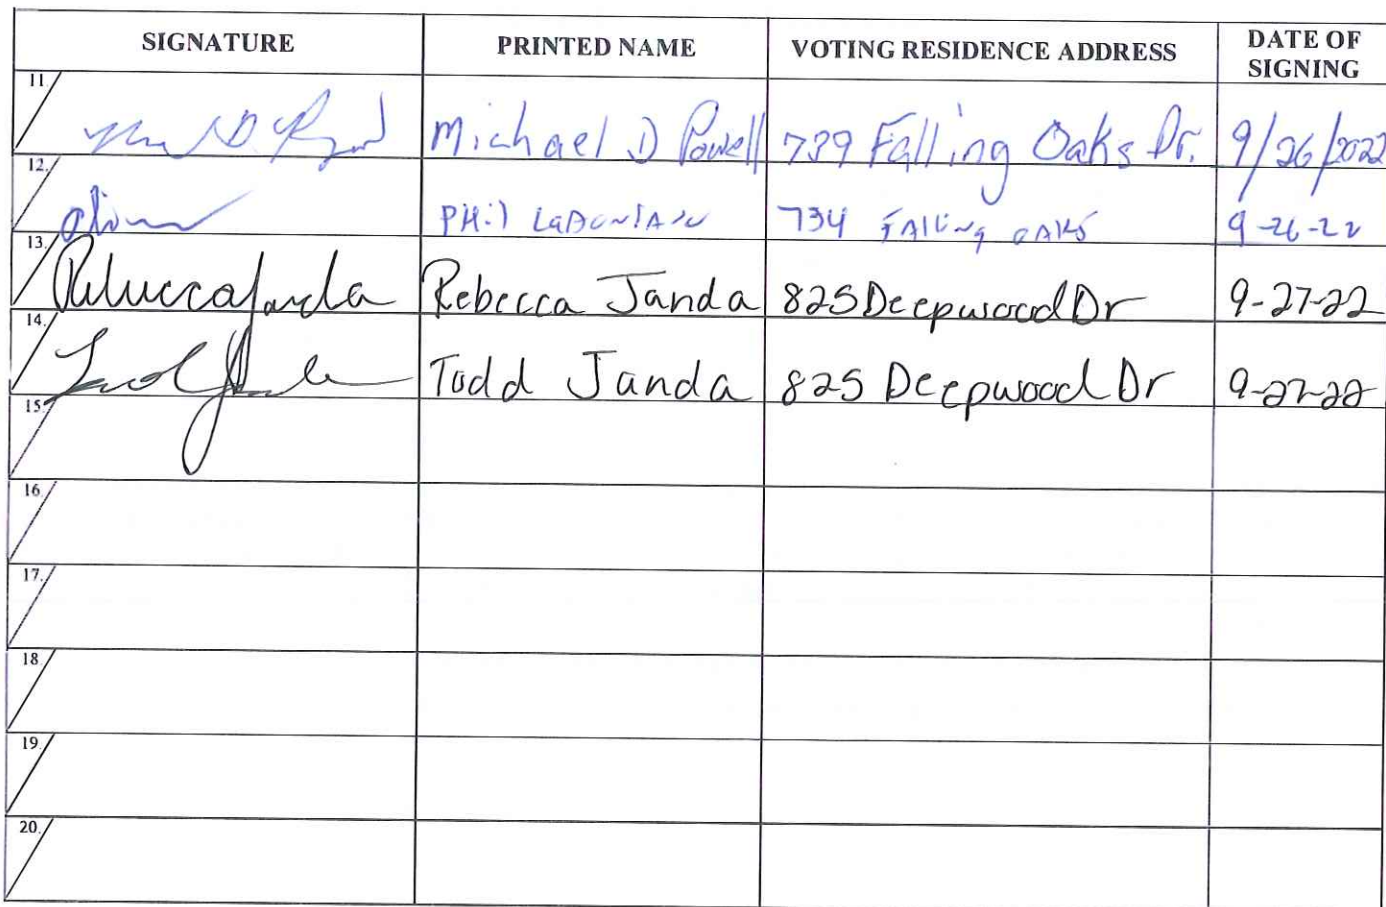 SIGNATURE PRINTED NAME VOTING RESIDENCE ADDRESS DATE OF SIGNING
11 Michael D Powell 739 Falling Oaks Dr. 9/26/2022
12. PHil 734 FAlling OAKS 9-26-22
13. Rebecca Janda Rebecca Janda 825 Deepwood Dr 9-27-22
14. Todd Janda 825 Deepwood Dr 9-27-22
15.
16.
17.
18.
19.
20.